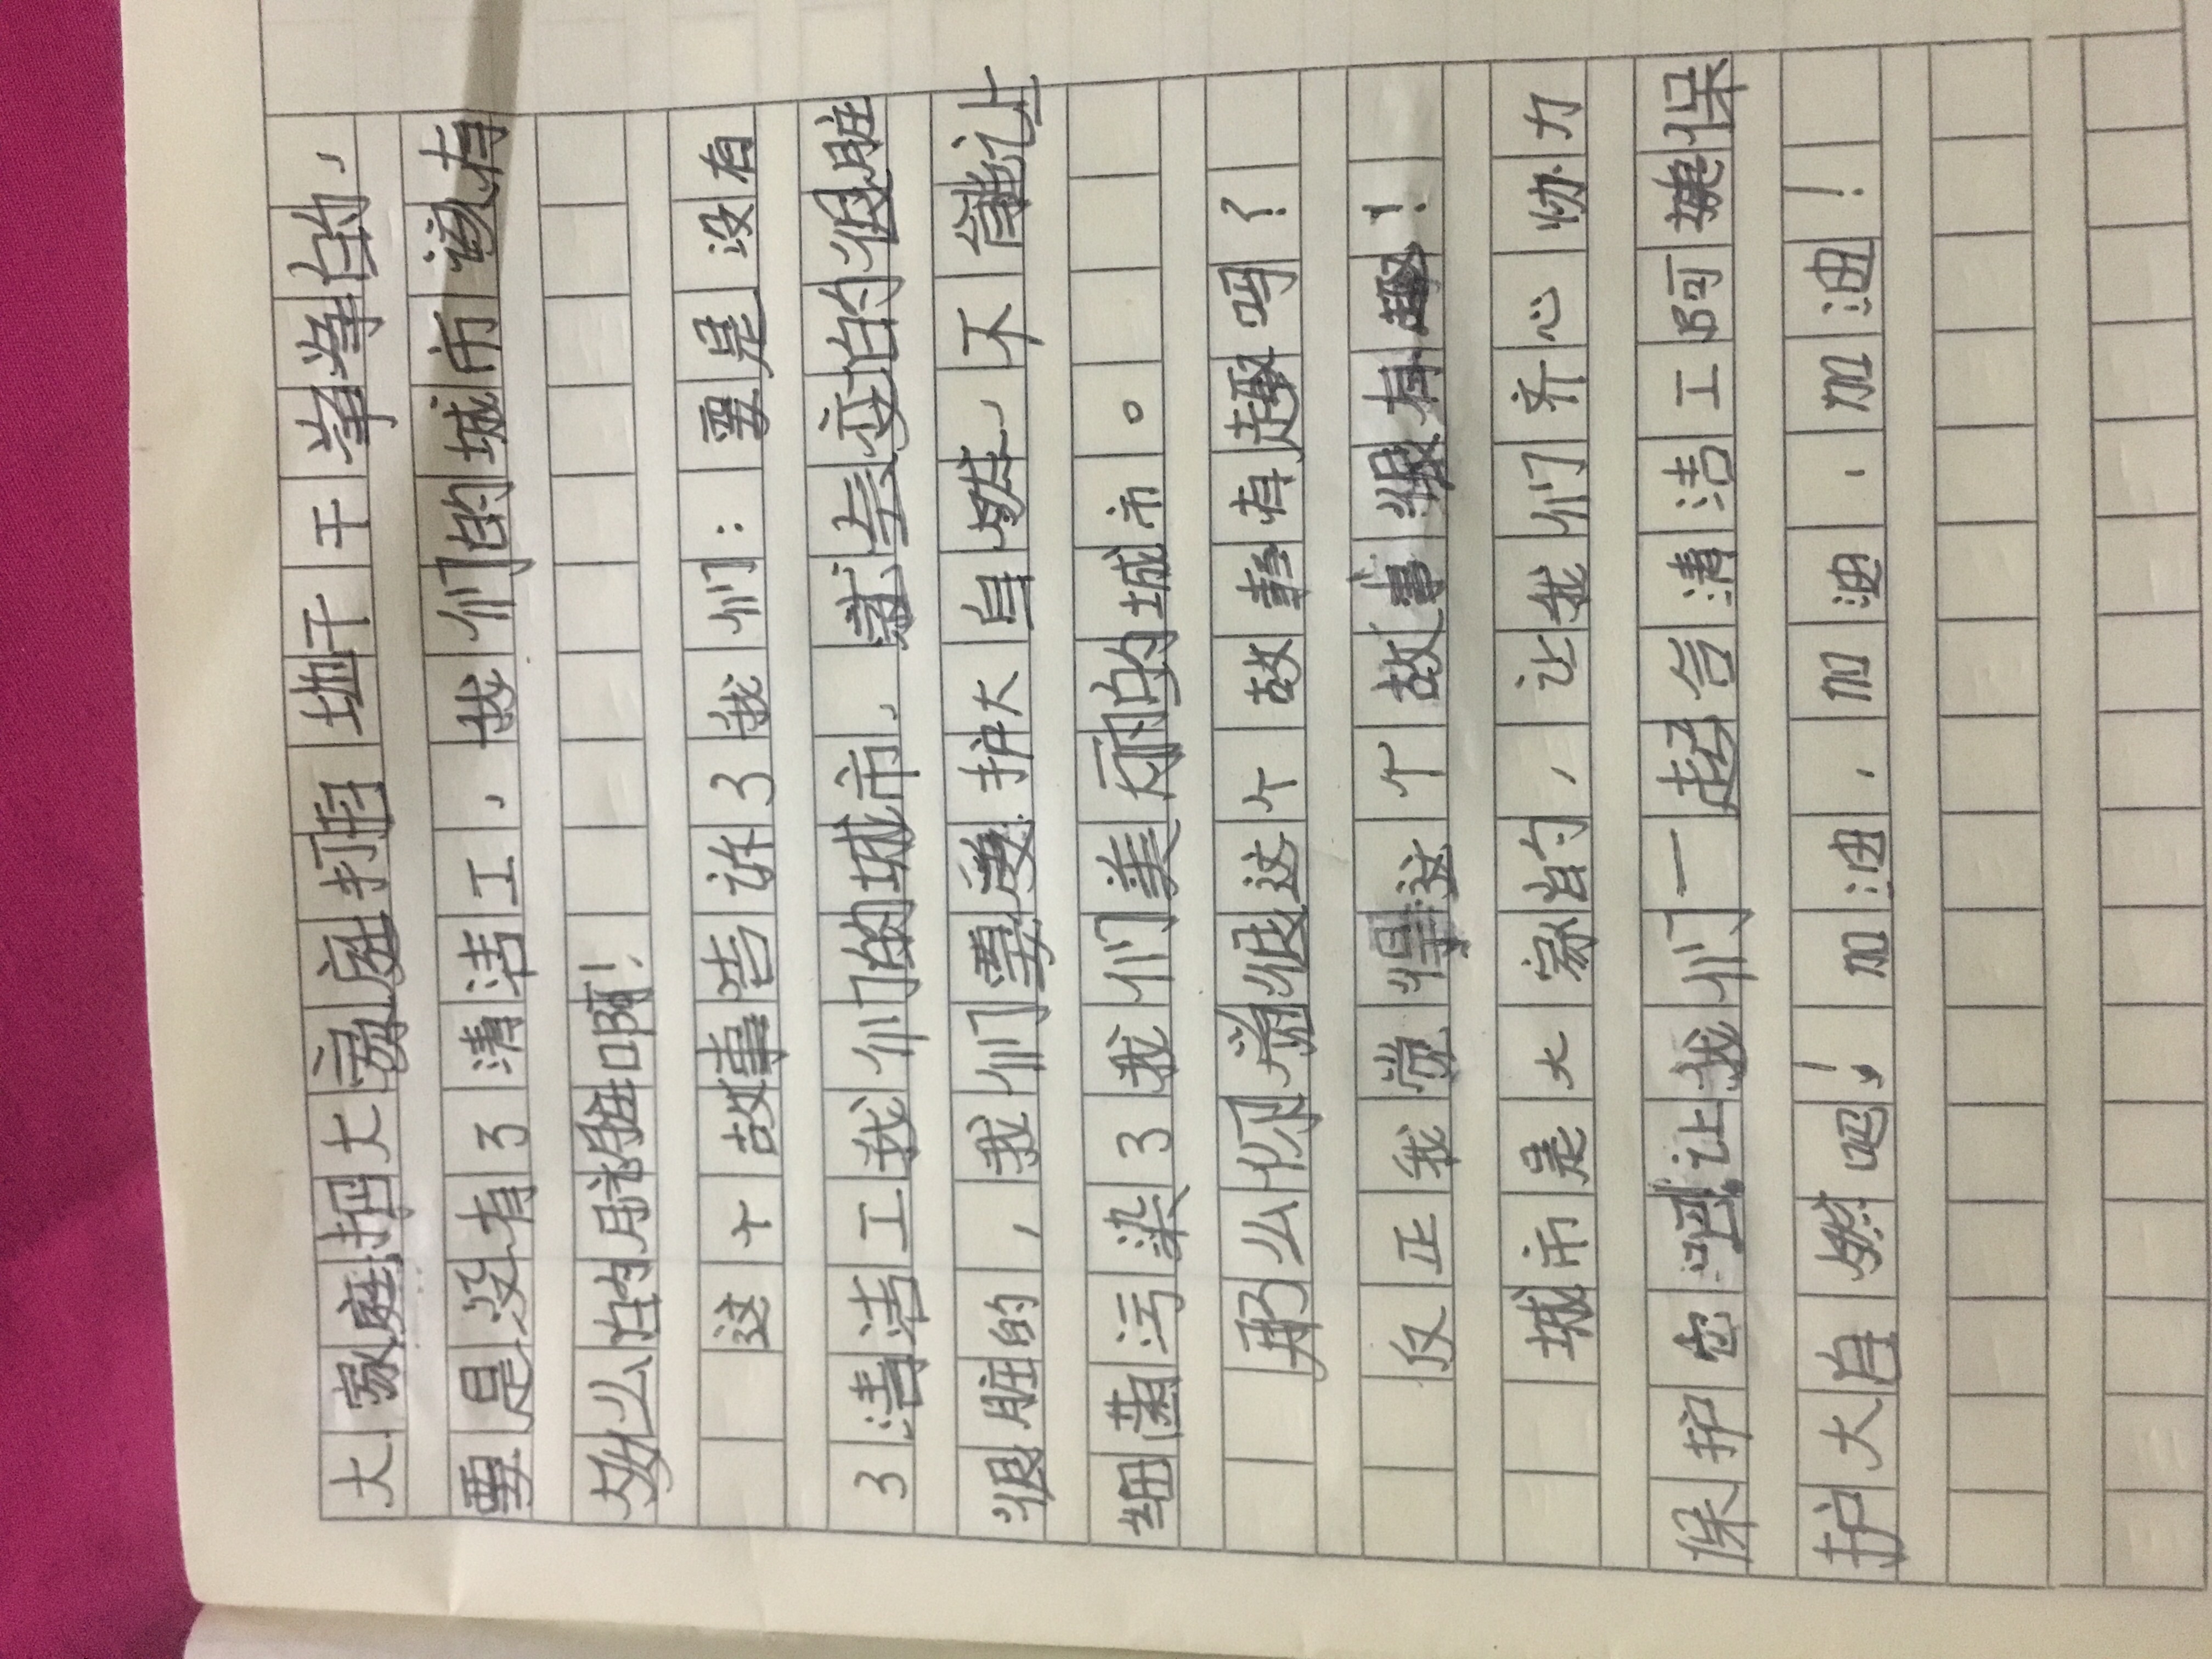 大家庭把大家庭打扫地干干净净的,
要是没有了清洁工,我们的城市该有
多么的肮脏啊!
这个故事告诉了我们:要是没有
了清洁工我们的城市,就会变的很脏
很脏的,我们要爱护大自然,不能让
细菌污染了我们美丽的城市。
那么你觉很这个故事有趣吗?
反正我觉得这个故事很有趣!
城市是大家的,让我们齐心协力
保护它吧让我们一起合清洁工阿姨保
护大自然吧!加油,加油,加油!